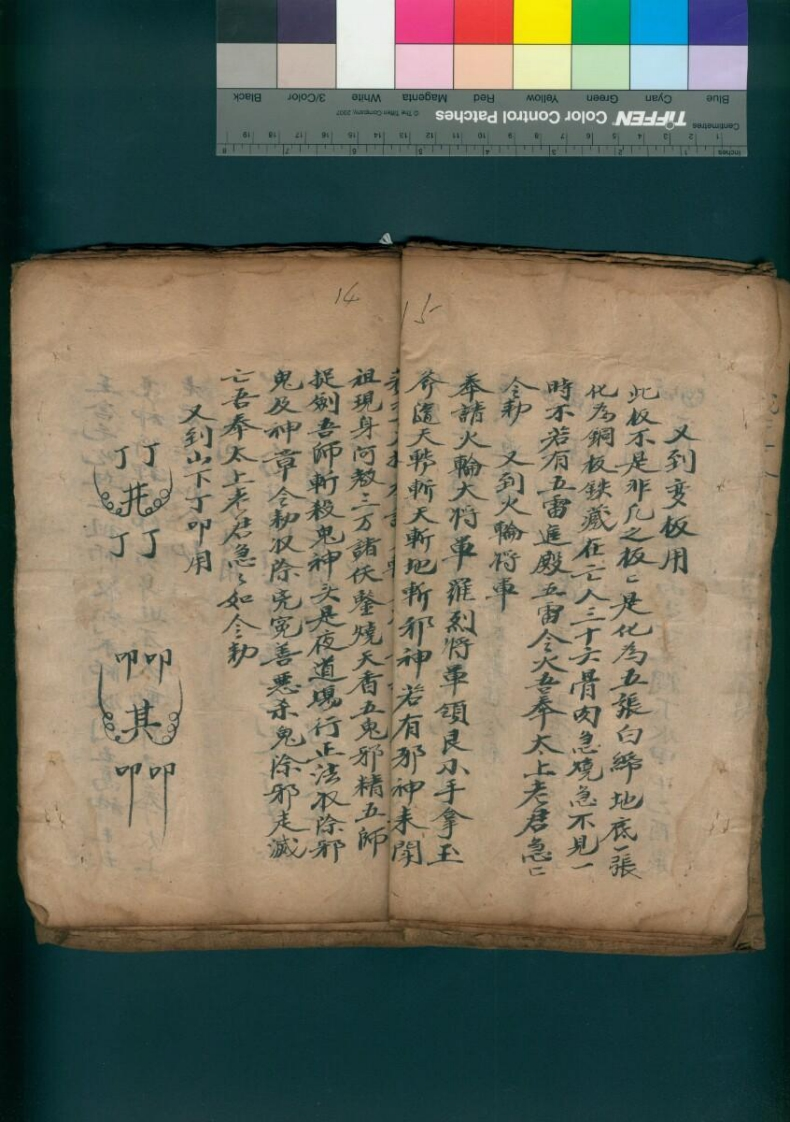 Blue Cyan Green Yellow Red Magenta White 3/Color Black
TIFFEN Color Control Patches © The Tiffen Company, 2007
Centimetres
1 2 3 4 5 6 7 8 9 10 11 12 13 14 15 16 17 18 19
Inches 1 2 3 4 5 6 7 8
15
又到变板用
此板不是非凡之板〻是化为五張白綿地底一張
化為銅板鉄藏在亡人三十六骨肉急燒急不見一
時不若有五雷進殿五雷令火吾奉太上老君急〻
令勅 又到火輪将軍
奉請火輪大将軍羅烈将軍領良小手拿玉
斧隨天斬天斬地斬邪神若有邪神来閙
祖現身何教三万諸伏燒天香五鬼邪精五師
捉劍吾師斬殺鬼神头是夜道場行正法收除邪
鬼及神章令勅收除冤善惡杀鬼除邪走滅
亡吾奉太上老君急〻如令勅
14
又到山下丁叩用
丁丁
井
丁丁
叩叩
其
叩叩